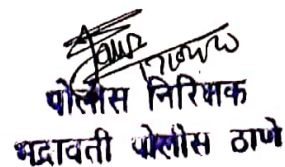 पोलीस निरिक्षक
भद्रावती पोलीस ठाणे